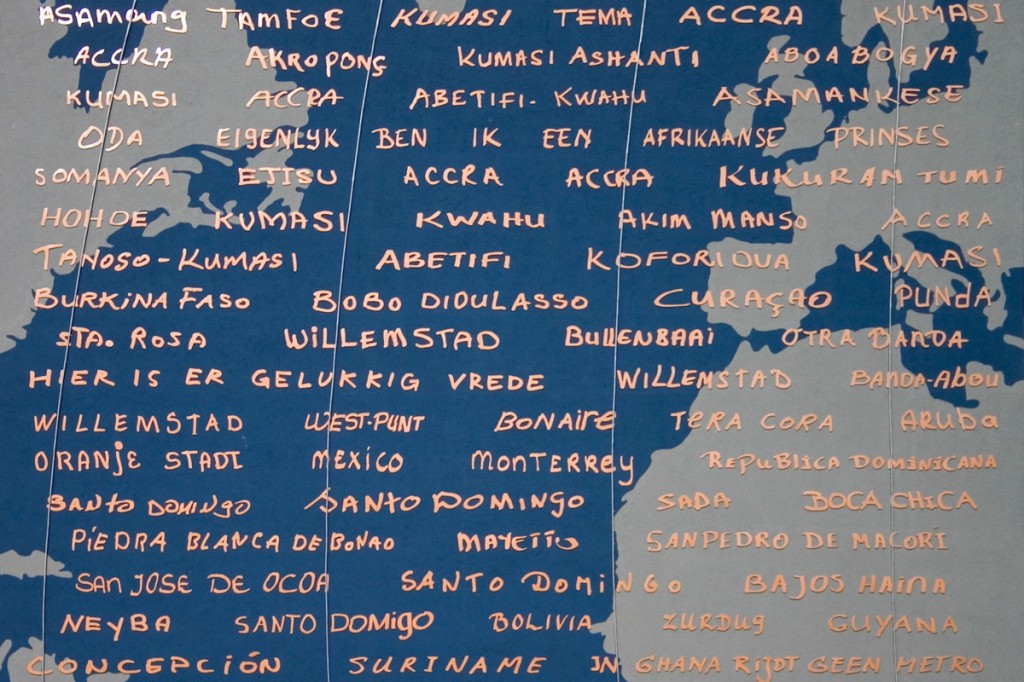 ASAMANG TAMFOE KUMASI TEMA ACCRA KUMASI
ACCRA AKROPONG KUMASI ASHANTI ABOABOGYA
KUMASI ACCRA ABETIFI-KWAHU ASAMANKESE
ODA EIGENLYK BEN IK EEN AFRIKAANSE PRINSES
SOMANYA EJISU ACCRA ACCRA KUKURANTUMI
HOHOE KUMASI KWAHU AKIM MANSO ACCRA
TANOSO-KUMASI ABETIFI KOFORIDUA KUMASI
BURKINA FASO BOBO DIDULASSO CURAÇAO PUNDA
STA. ROSA WILLEMSTAD BULLENBAAI OTRA BANDA
HIER IS ER GELUKKIG VREDE WILLEMSTAD BANDA-ABOU
WILLEMSTAD WEST-PUNT BONAIRE TERA CORA ARUBA
ORANJE STADT MEXICO MONTERREY REPUBLICA DOMINICANA
SANTO DOMINGO SANTO DOMINGO SADA BOCA CHICA
PIEDRA BLANCA DE BONAO MAYETTO SANPEDRO DE MACORI
SAN JOSE DE OCOA SANTO DOMINGO BAJOS HAINA
NEYBA SANTO DOMIGO BOLIVIA ZURDUG GUYANA
CONCEPCIÓN SURINAME IN GHANA RIJDT GEEN METRO